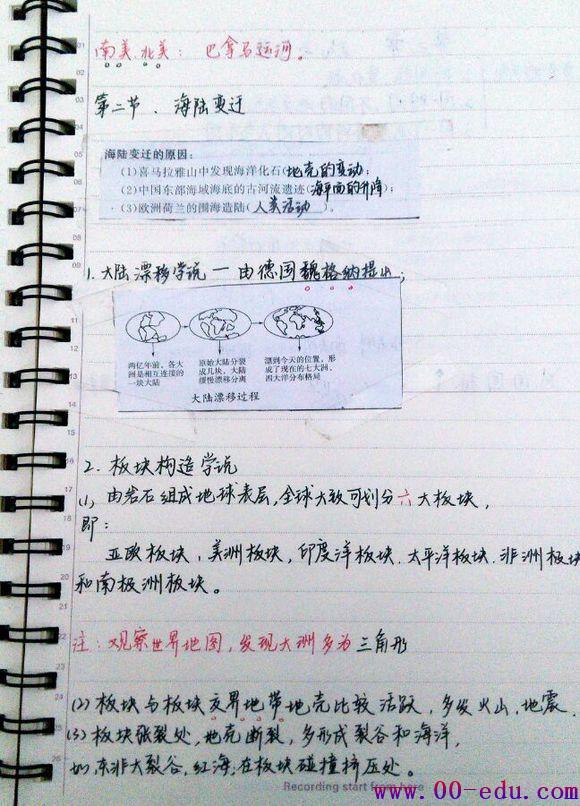 南美,北美: 巴拿马运河。
第二节. 海陆变迁
海陆变迁的原因:
(1)喜马拉雅山中发现海洋化石(地壳的变动;
(2)中国东部海域海底的古河流遗迹(海平面的升降);
(3)欧洲荷兰的围海造陆(人类活动)。
1.大陆漂移学说一由德国魏格纳提出;
两亿年前,各大
洲是相互连接的
一块大陆
原始大陆分裂
成几块,大陆
缓慢漂移分离
漂到今天的位置,形
成了现在的七大洲、
四大洋分布格局
大陆漂移过程
2.板块构造学说
(1)由岩石组成地球表层,全球大致可划分六大板块,
即:
亚欧板块,美洲板块,印度洋板块.太平洋板块.非洲板块
和南极洲板块。
注:观察世界地图,发现大洲多为三角形
(2)板块与板块交界地带地壳比较活跃,多发火山.地震.
(3)板块张裂处,地壳断裂,多形成裂谷和海洋,
如,东非大裂谷,红海;在板块碰撞挤压处。
Recording start from here
www.00-edu.com